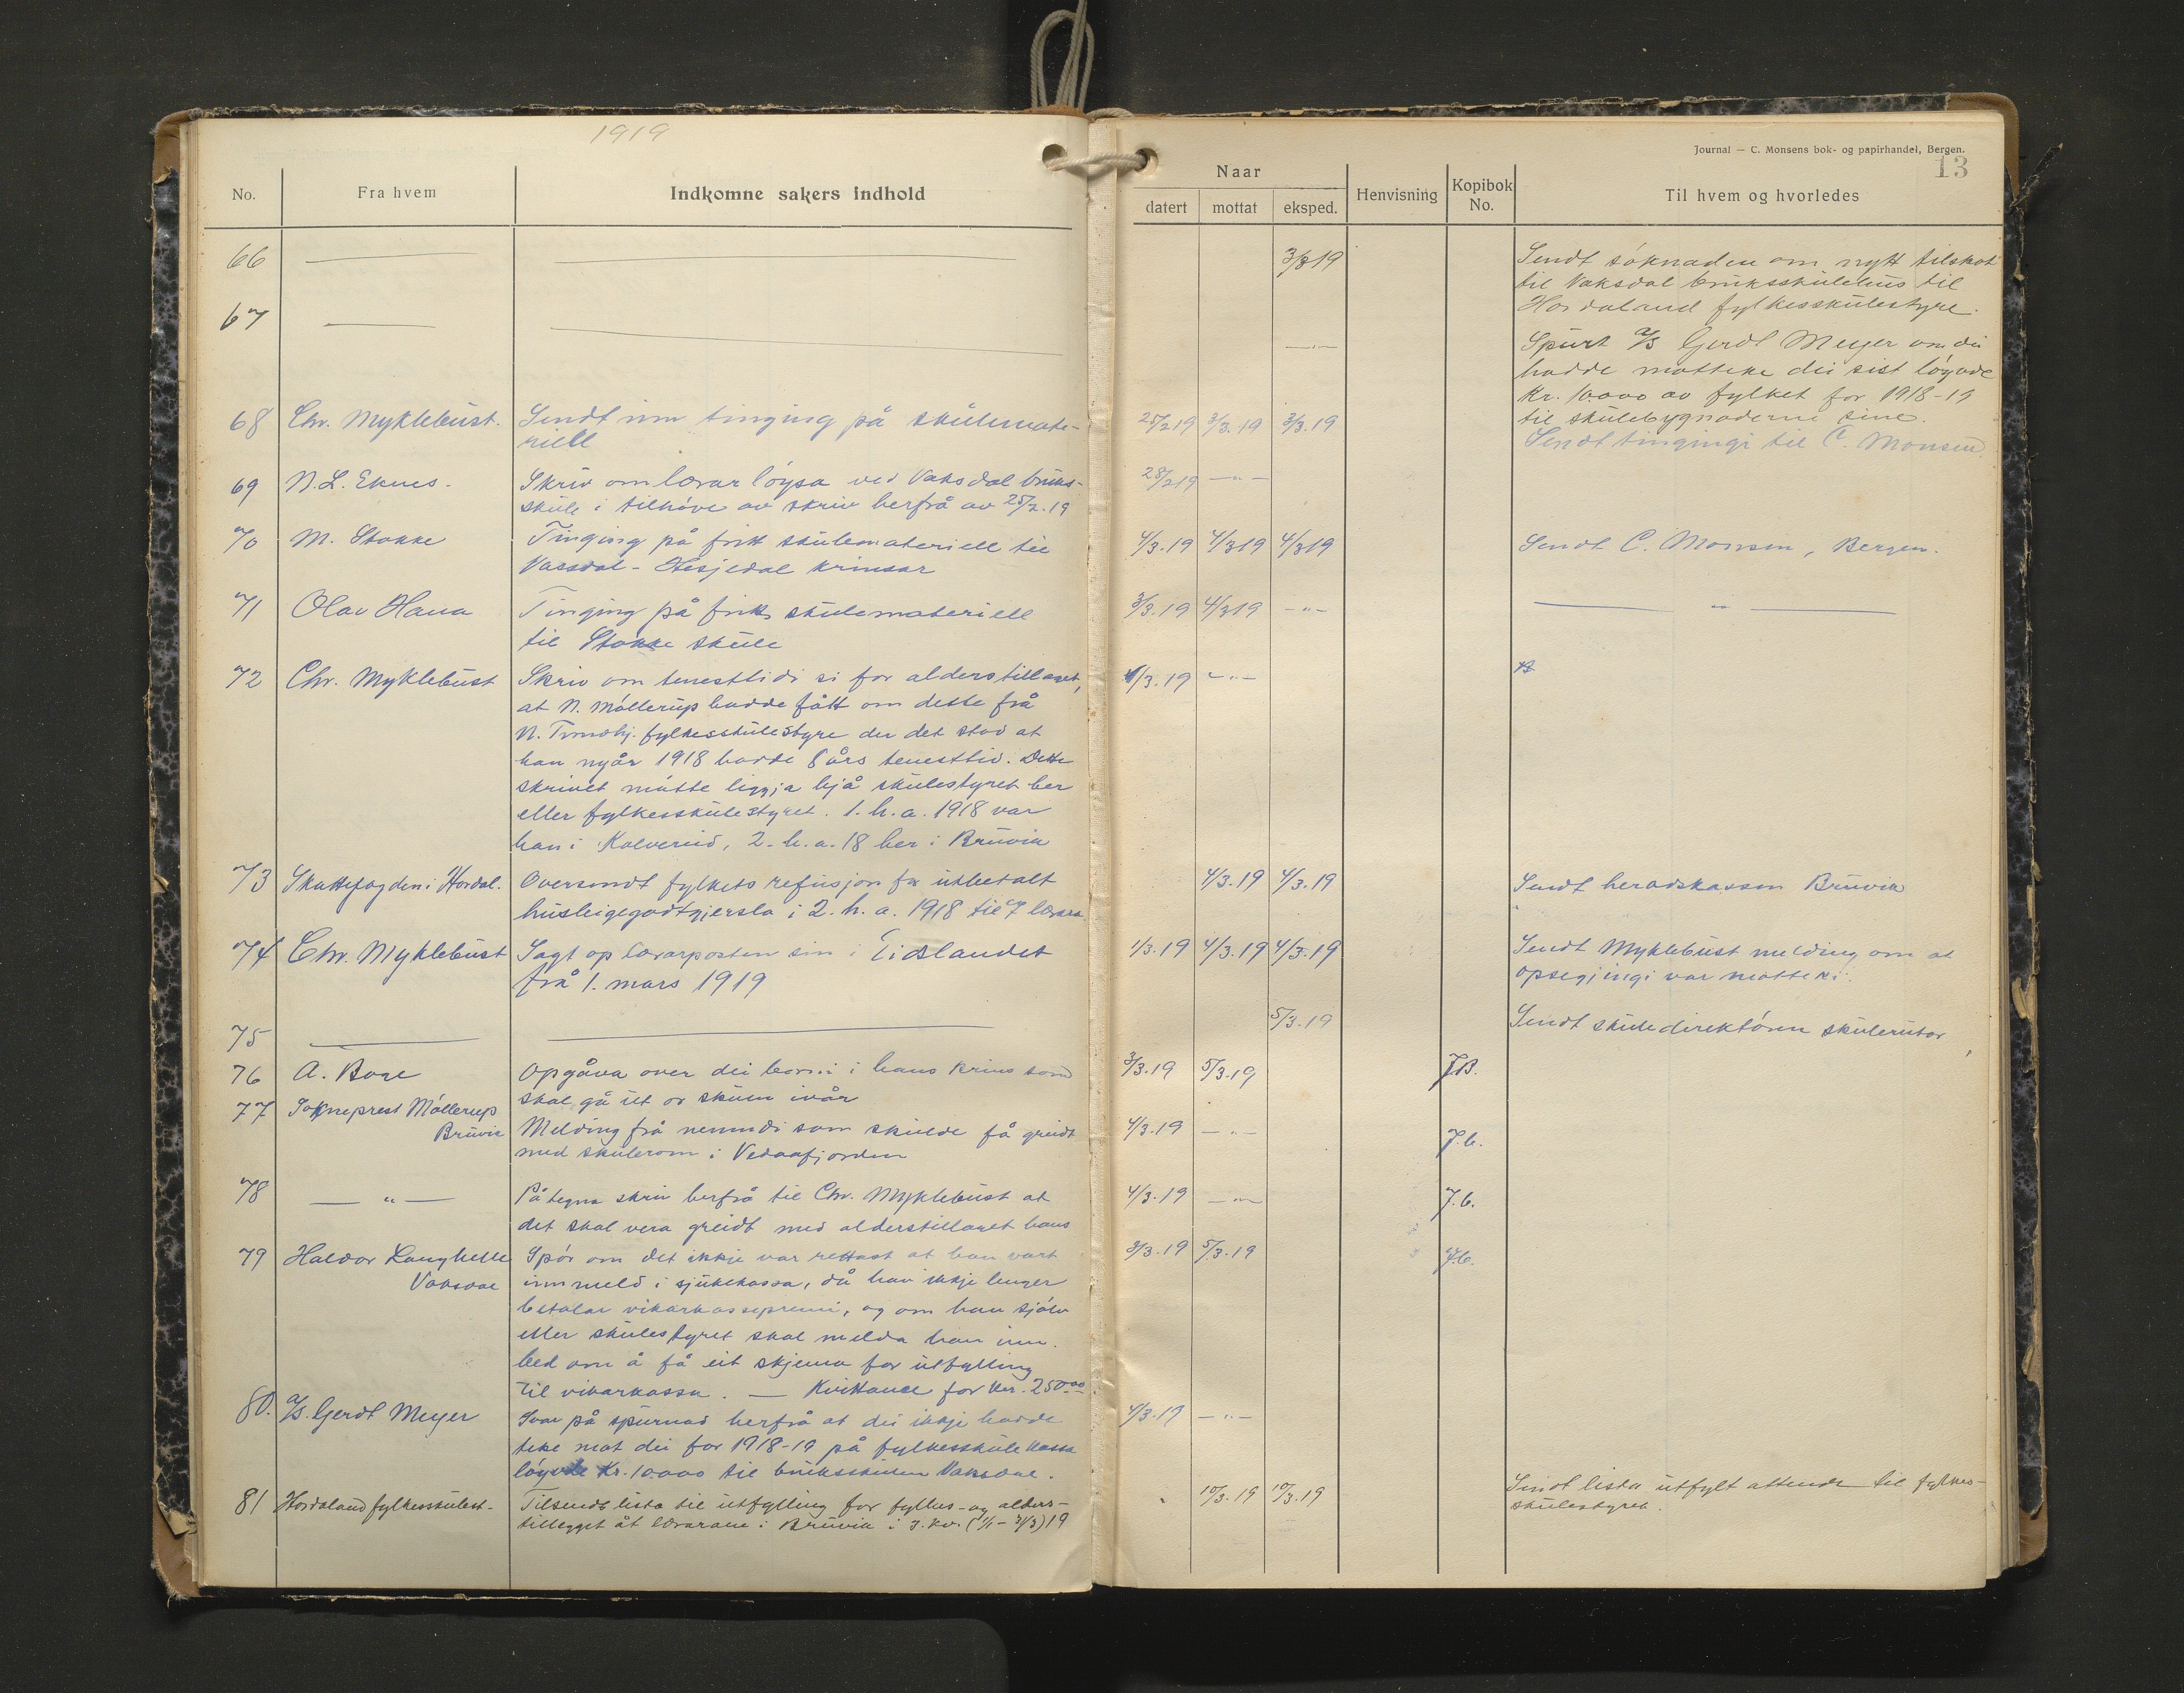 1919
No. Fra hvem Indkomne sakers indhold
66
67
68 Chr. Myklebust. Sendt inn tinging på skulemate-
riell
69 N. L. Eknes. Skriv om lærarløysa ved Vaksdal bruks-
skule i tilhøve av skriv herfrå av 25/2.19
70 M. Stokke Tinging på fritt skulemateriell til
Vassdal - Hesjedal krinsar
71 Olav Hana Tinging på fritt skulemateriell
til Stokke skule
72 Chr. Myklebust Skriv om tenesttidi si for alderstillaget,
at N. Møllerup hadde fått om dette frå
N. Trondhj. fylkesskulestyre der det stod at
han nyår 1918 hadde 8 års tenesttid. Dette
skrivet måtte liggja hjå skulestyret her
eller fylkesskulestyret. 1. h. a. 1918 var
han i Kolvereid, 2. h. a. 18 her i Bruvik
73 Skattefogden i Hordal. Oversendt fylkets refusjon for utbetalt
husleigegodtgjersla i 2. h. a. 1918 til 7 lærara.
74 Chr. Myklebust Sagt op lærarposten sin i Eidslandet
frå 1. mars 1919
75
76 A. Boge Opgåva over dei borni i hans krins som
skal gå ut or skulen ivår
77 Sokneprest Møllerup
Bruvik Melding frå nemndi som skulde få greidt
med skulerom i Vedaafjorden
78 — " — Påtegna skriv herfrå til Chr. Myklebust at
det skal vera greidt med alderstillaget hans
79 Haldor Langhelle Spør om det ikkje var rettast at han vart
Vaksdal innmeld i sjukekassa, då han ikkje lenger
betalar vikarkassepremi, og om han sjølv
eller skulestyret skal melda han inn.
bed om å få eit skjema for utfylling
til vikarkassa. — Kvittance for kr. 250.00
80. A/S. Gerdt Meyer Svar på spurnad herfrå at dei ikkje hadde
teke mot dei for 1918-19 på fylkesskulekassa
løyvde Kr. 10000 til bruksskulen Vaksdal.
81 Hordaland fylkesskulest. Tilsendt lista til utfylling for fyllnes- og alders-
tillegget åt lærarane i Bruvik i 3. kv. (1/1 - 31/3) 19
Journal — C. Monsens bok- og papirhandel, Bergen.
13
Naar
datert mottat eksped. Henvisning Kopibok No. Til hvem og hvorledes
3/3 19 Sendt søknaden om nytt tilskot
til Vaksdal bruksskulehus til
Hordaland fylkesskulestyre.
— " — Spurt A/S Gerdt Meyer om dei
hadde motteke dei sist løyvde
Kr. 10000 av fylket for 1918-19
til skulebygnaderne sine.
25/2 19 3/3. 19 3/3. 19 Sendt tingingi til C. Monsen.
28/2 19 — " —
4/3. 19 4/3 19 4/3 19 Sendt C. Monsen, Bergen.
3/3. 19 4/3 19 — " — — " —
1/3. 19 — " —
4/3. 19 4/3. 19 Sendt heradskassen Bruvik
1/3. 19 4/3. 19 4/3. 19 Sendt Myklebust melding om at
opsegjingi var motteki.
5/3. 19 Sendt skuledirektøren skulerutor
3/3. 19 5/3. 19 J.B.
4/3. 19 — " — J.b.
4/3. 19 — " — J.b.
3/3. 19 5/3. 19 J.b.
4/3. 19 — " —
10/3. 19 10/3. 19 Sendt lista utfylt attende til fylkes-
skulestyret.